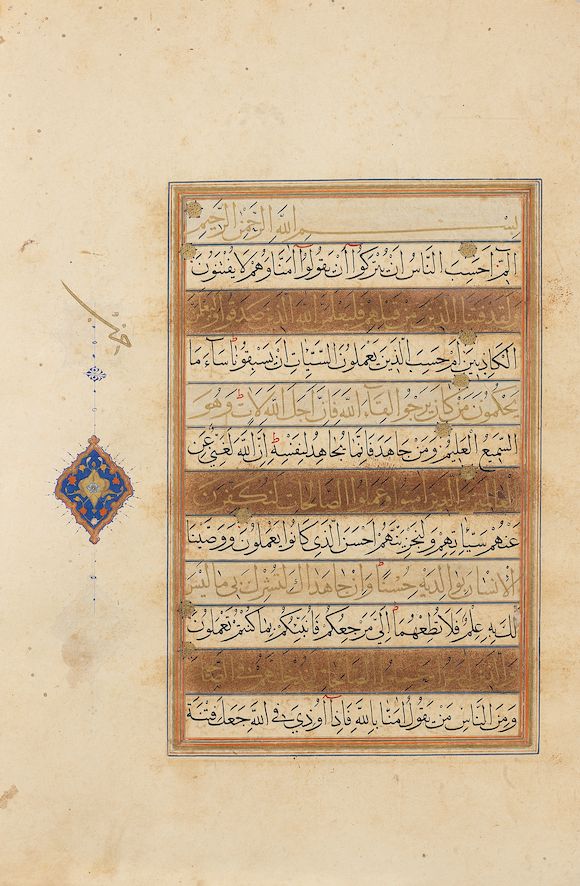 بِسْمِ اللَّهِ الرَّحْمَٰنِ الرَّحِيمِ
الٓمٓ اَحَسِبَ النَّاسُ اَنْ يُتْرَكُوٓا اَنْ يَقُولُوٓا اٰمَنَّا وَهُمْ لَا يُفْتَنُونَ
وَلَقَدْ فَتَنَّا الَّذِينَ مِنْ قَبْلِهِمْ فَلَيَعْلَمَنَّ اللَّهُ الَّذِينَ صَدَقُوا وَلَيَعْلَمَنَّ
الْكَاذِبِينَ اَمْ حَسِبَ الَّذِينَ يَعْمَلُونَ السَّيِّئَاتِ اَنْ يَسْبِقُونَا سَآءَ مَا
يَحْكُمُونَ مَنْ كَانَ يَرْجُوا لِقَآءَ اللَّهِ فَاِنَّ اَجَلَ اللَّهِ لَاٰتٍ وَهُوَ
السَّمِيعُ الْعَلِيمُ وَمَنْ جَاهَدَ فَاِنَّمَا يُجَاهِدُ لِنَفْسِهِ اِنَّ اللَّهَ لَغَنِيٌّ عَنِ
الْعَالَمِينَ وَالَّذِينَ اٰمَنُوا وَعَمِلُوا الصَّالِحَاتِ لَنُكَفِّرَنَّ
عَنْهُمْ سَيِّئَاتِهِمْ وَلَنَجْزِيَنَّهُمْ اَحْسَنَ الَّذِي كَانُوا يَعْمَلُونَ وَوَصَّيْنَا
الْاِنْسَانَ بِوَالِدَيْهِ حُسْنًا وَاِنْ جَاهَدَاكَ لِتُشْرِكَ بِي مَا لَيْسَ
لَكَ بِهِ عِلْمٌ فَلَا تُطِعْهُمَا اِلَيَّ مَرْجِعُكُمْ فَاُنَبِّئُكُمْ بِمَا كُنْتُمْ تَعْمَلُونَ
وَالَّذِينَ اٰمَنُوا وَعَمِلُوا الصَّالِحَاتِ لَنُدْخِلَنَّهُمْ فِي الصَّالِحِينَ
وَمِنَ النَّاسِ مَنْ يَقُولُ اٰمَنَّا بِاللَّهِ فَاِذَآ اُوذِيَ فِي اللَّهِ جَعَلَ فِتْنَةَ
حزب